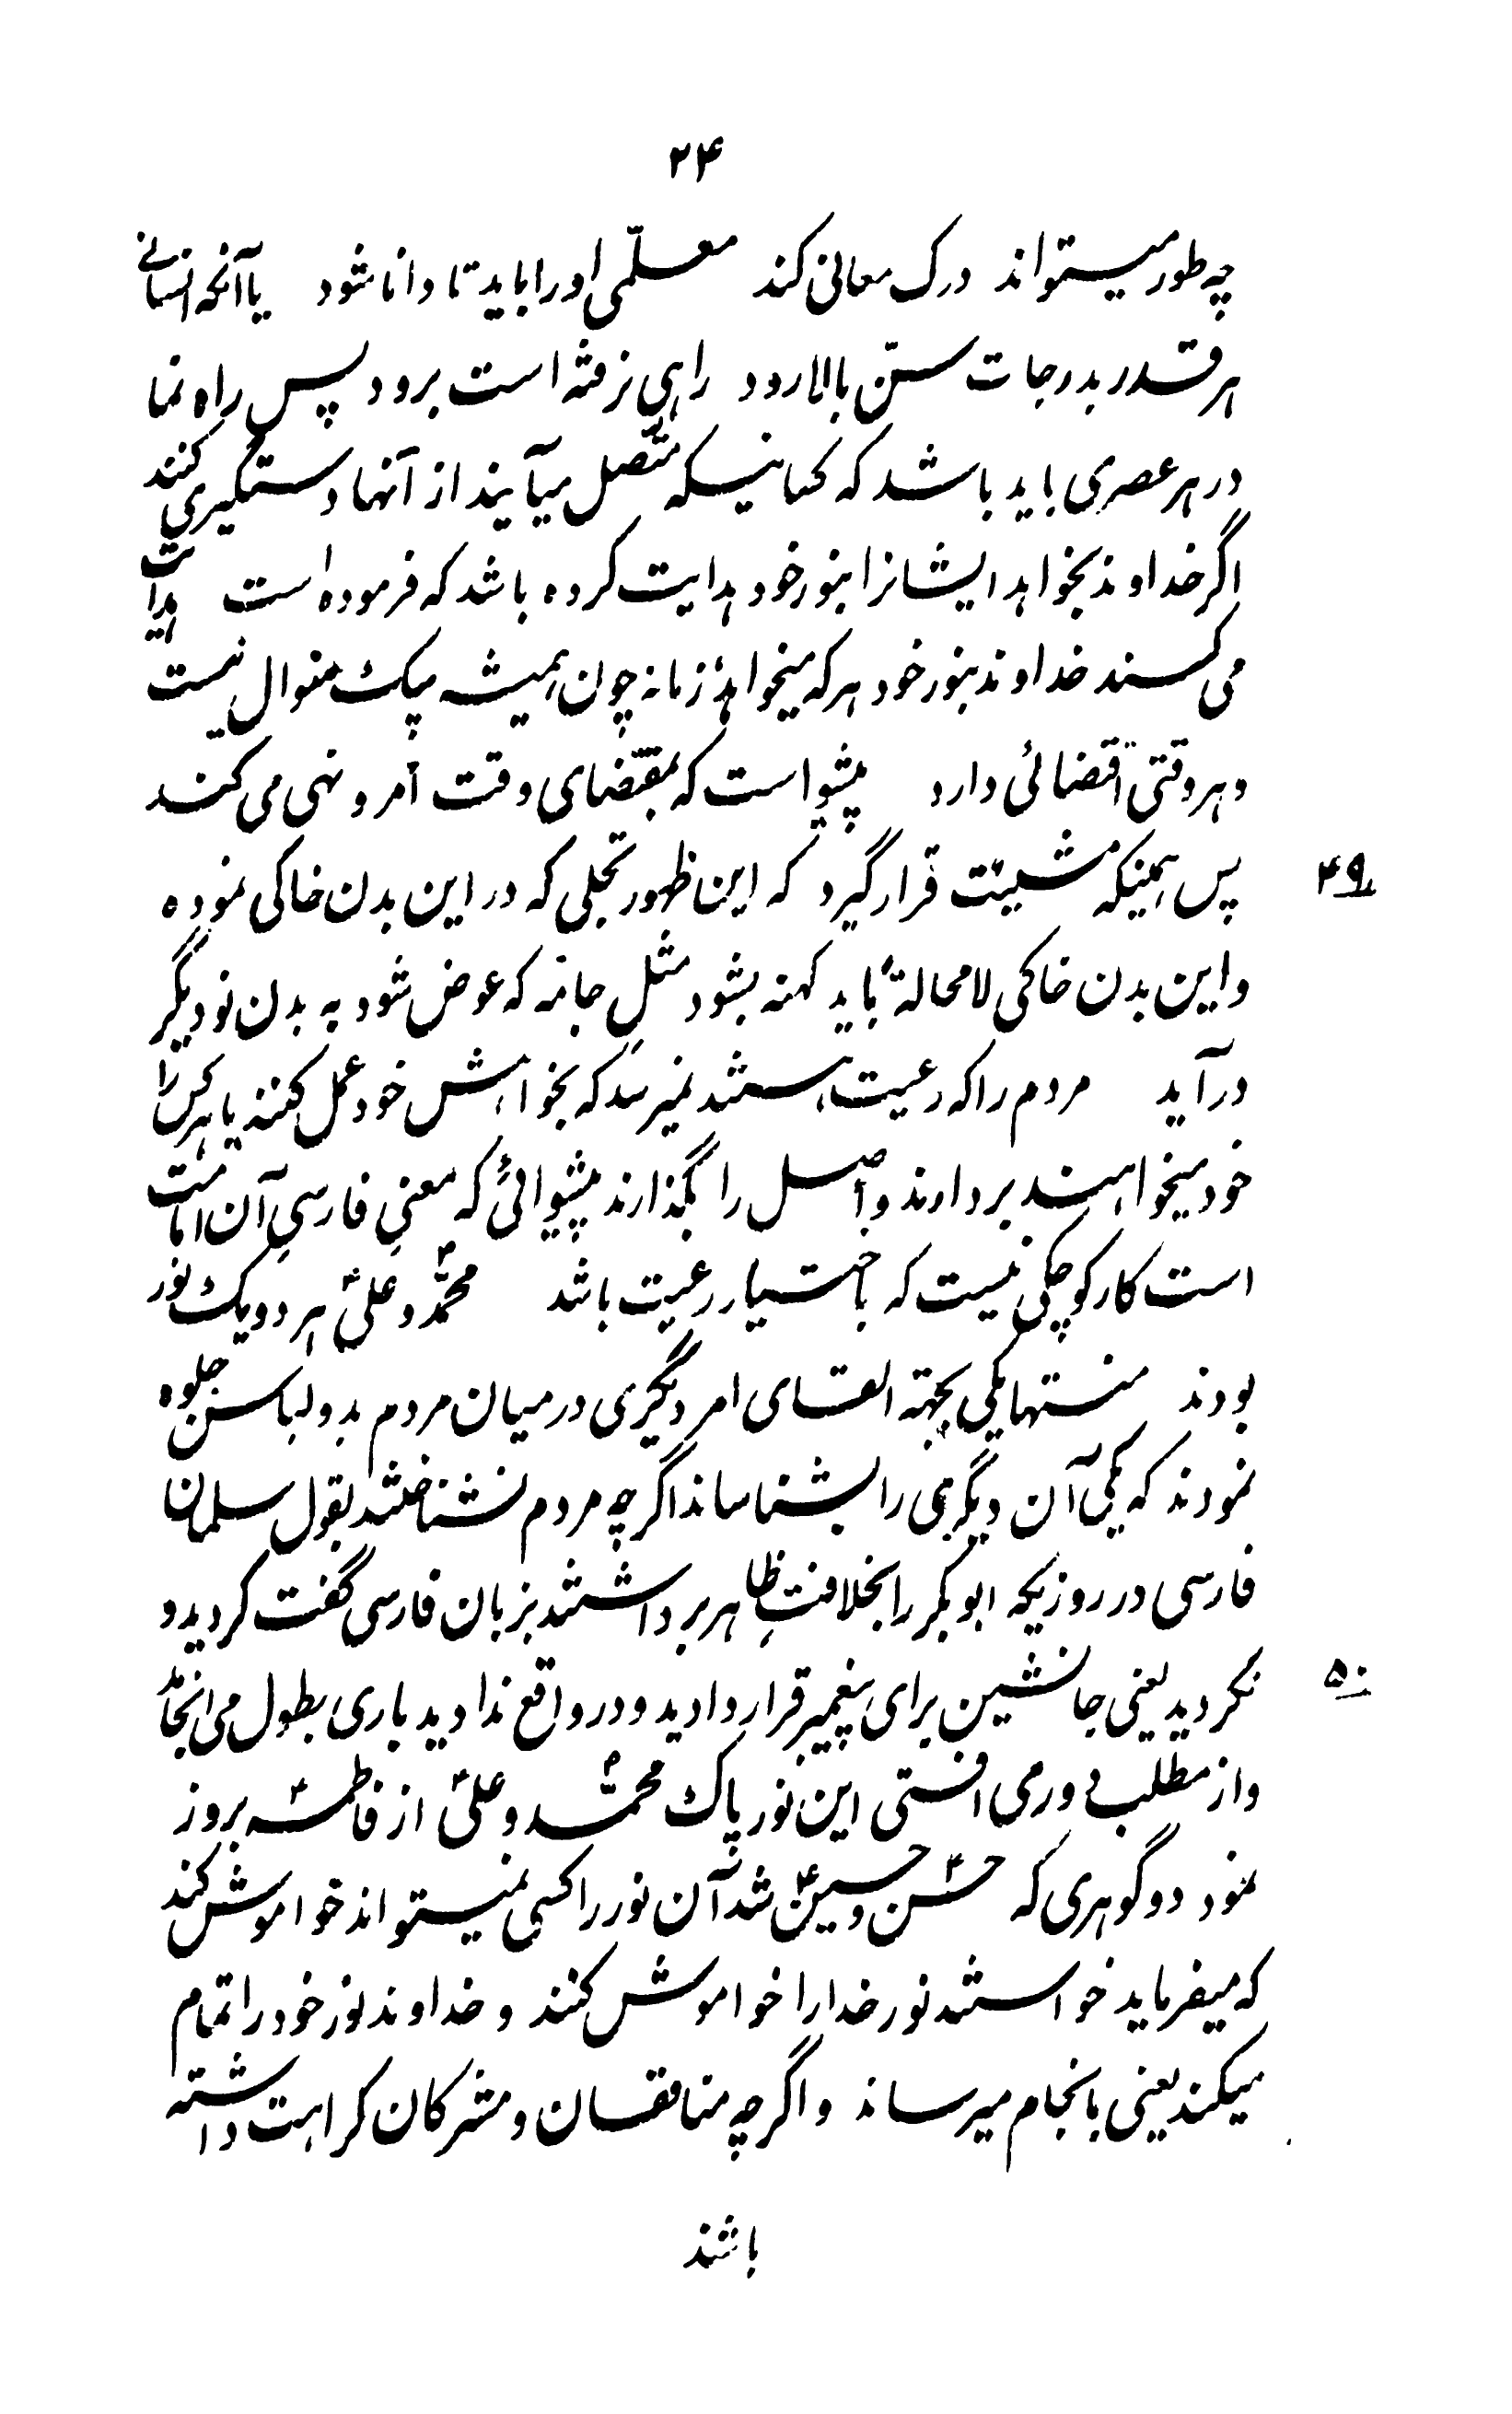 ۲۴
چه طور میتواند درک معانی کند معلّمی او را باید تا دانا شود یا آنکه انسانی
هر قدر بدرجات سنّ بالا رود راهی نرفته است برود پس راه نما
در هر عصری باید باشد که کسانیکه متّصل میآیند از آنها دستگیری کنند
اگر خداوند بخواهد ایشانرا بنور خود هدایت کرده باشد که فرموده است هدایت
می کند خداوند بنور خود هر که میخواهد زمانه چون همیشه بیک منوال نیست
و هر وقتی اقتضائی دارد پیشوا است که بمقتضای وقت امر و نهی می کند
۴۹ پس همینکه مشیئت قرار گیرد که این ظهور تجلی که در این بدن خاکی نموده
و این بدن خاکی لامحالة باید کهنه بشود مثل جامه که عوض شود به بدن نو دیگر
در آید مردم را که رعیت هستند نمیرسد که بخواهش خود عمل کنند یا هر کس را
خود میخواهند بردارند و اصل را بگذارند پیشوائی که معنی فارسی آن امامت
است کار کوچکی نیست که باختیار رعیت باشد محمّد و علی هر دو یک نور
بودند منتها یکی بجهة القای امر دیگری در میان مردم بدو لباس جلوه
نمودند که یکی آن دیگری را بشناساند اگر چه مردم نشناختند بقول سلمان
فارسی در روزیکه ابوبکر را بخلافت ظاهر برداشتند بزبان فارسی گفت کردید و
۵۰ نکردید یعنی جانشین برای پیغمبر قرار دادید و در واقع ندادید باری بطول می انجامد
و از مطلب دور می افتی این نور پاک محمّد و علی از فاطمه بروز
نمود دو گوهری که حسن و حسین شد آن نور را کسی نمیتواند خواموش کند
که میفرماید خواستند نور خدا را خواموش کنند و خداوند نور خود را تمام
میکند یعنی بانجام میرساند و اگر چه منافقان و مشرکان کراهت داشته
باشند